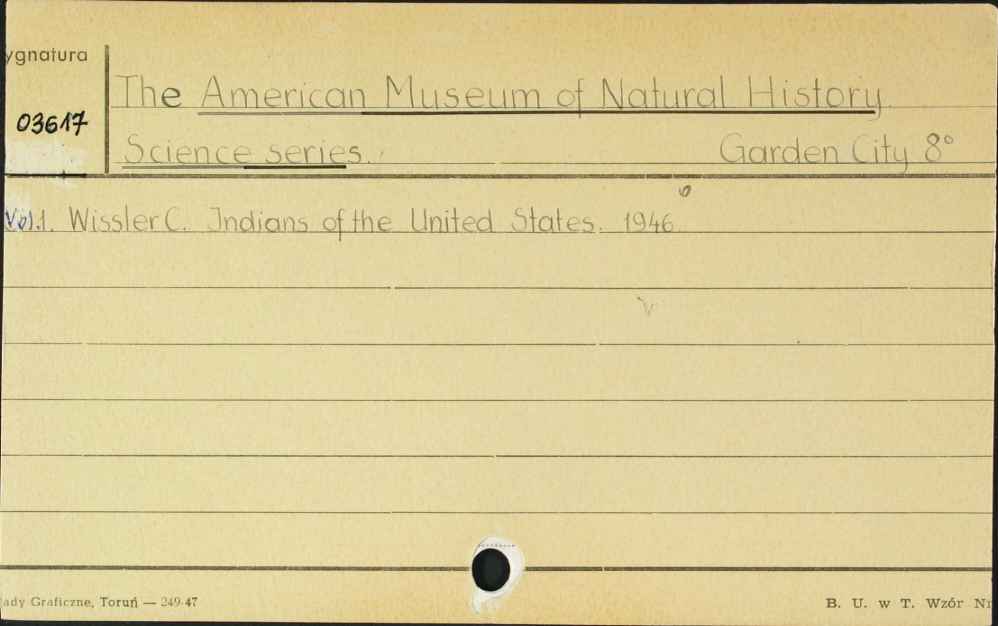 ygnatura
The American Museum of Natural History
03617
Science series. Garden City 8°
Vol.1. Wissler C. Indians of the United States. 1946
ady Graficzne, Toruń — 249-47
B. U. w T. Wzór Nr